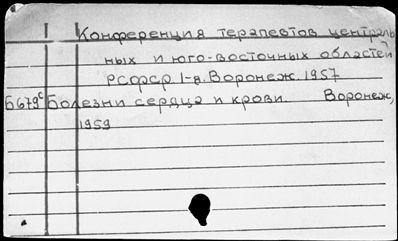 Конференция терапевтов централь
ных и юго-восточных областей
РСФСР. 1-я. Воронеж. 1957
Б679с Болезни сердца и крови. Воронеж,
1959